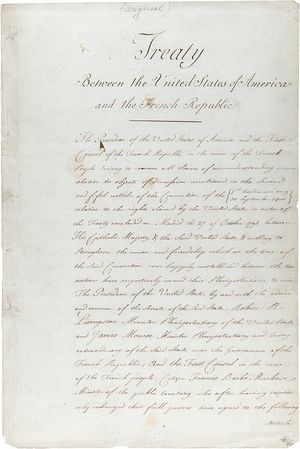 (Original)
Treaty
Between the United States of America
and the French Republic
The President of the United States of America and the First
Consul of the French Republic in the name of the French
People desiring to remove all Source of misunderstanding
relative to objects of discussion mentioned in the Second
and fifth articles of the Convention of the (8th Vendémiaire an 9 / 30 September 1800)
relative to the rights claimed by the United States in virtue of
the Treaty concluded at Madrid the 27 of October 1795 between
His Catholic Majesty, & the Said United States, & willing to
Strengthen the union and friendship which at the time of
the Said Convention was happily reestablished between the two
nations have respectively named their Plenipotentiaries to wit
The President of the United States, by and with the advice
and consent of the Senate of the Said States, Robert R.
Livingston Minister Plenipotentiary of the United States
and James Monroe Minister Plenipotentiary and Envoy
extraordinary of the Said States near the Government of the
French Republic; And the First Consul in the name
of the French people, Citizen Francis Barbé Marbois
Minister of the public treasury who after having respectively
exchanged their full powers have agreed to the following
articles